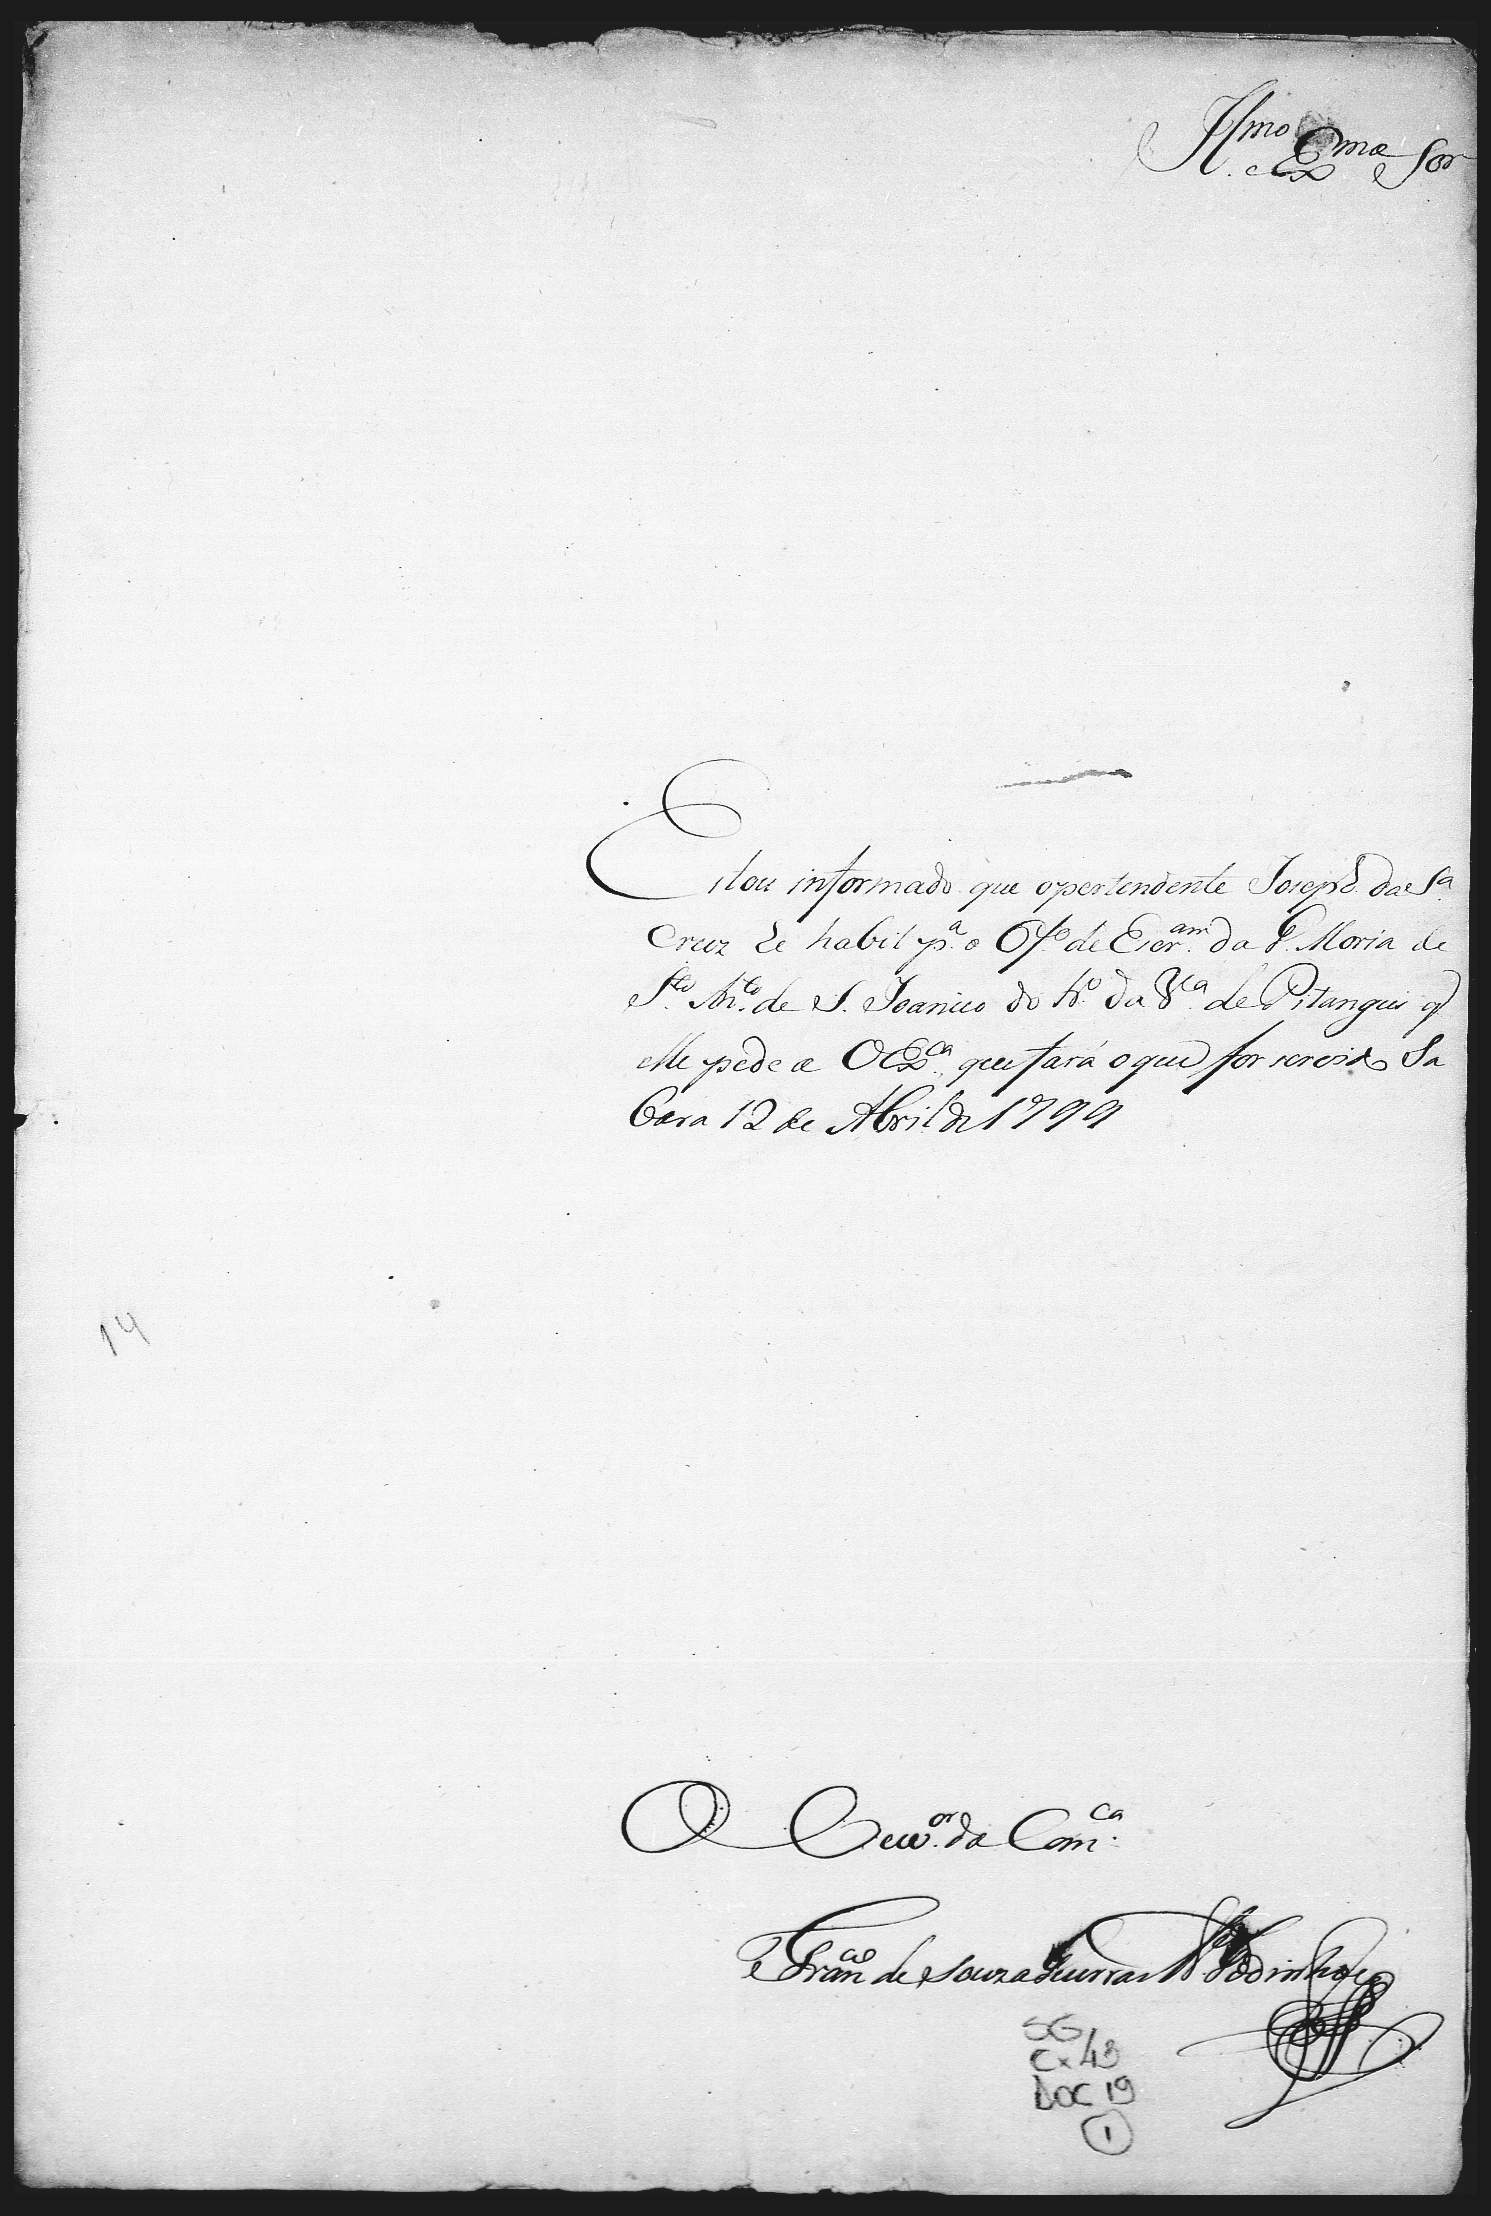 Illmo Exmo Sor
Estou informado que opertendente Joseph da Sa
Cruz he habil pa o Offo de Escram da V. Moria de
Sto Anto de S. Joanico do tro da Va de Pitangui q
elle pede a V Exca, que fará o que for servido Sa
bara 12 de Abril de 1799
14
O Ouvor da Comca
Franco de Souza Guerra Godinho
SG
Cx 43
DOC 19
1